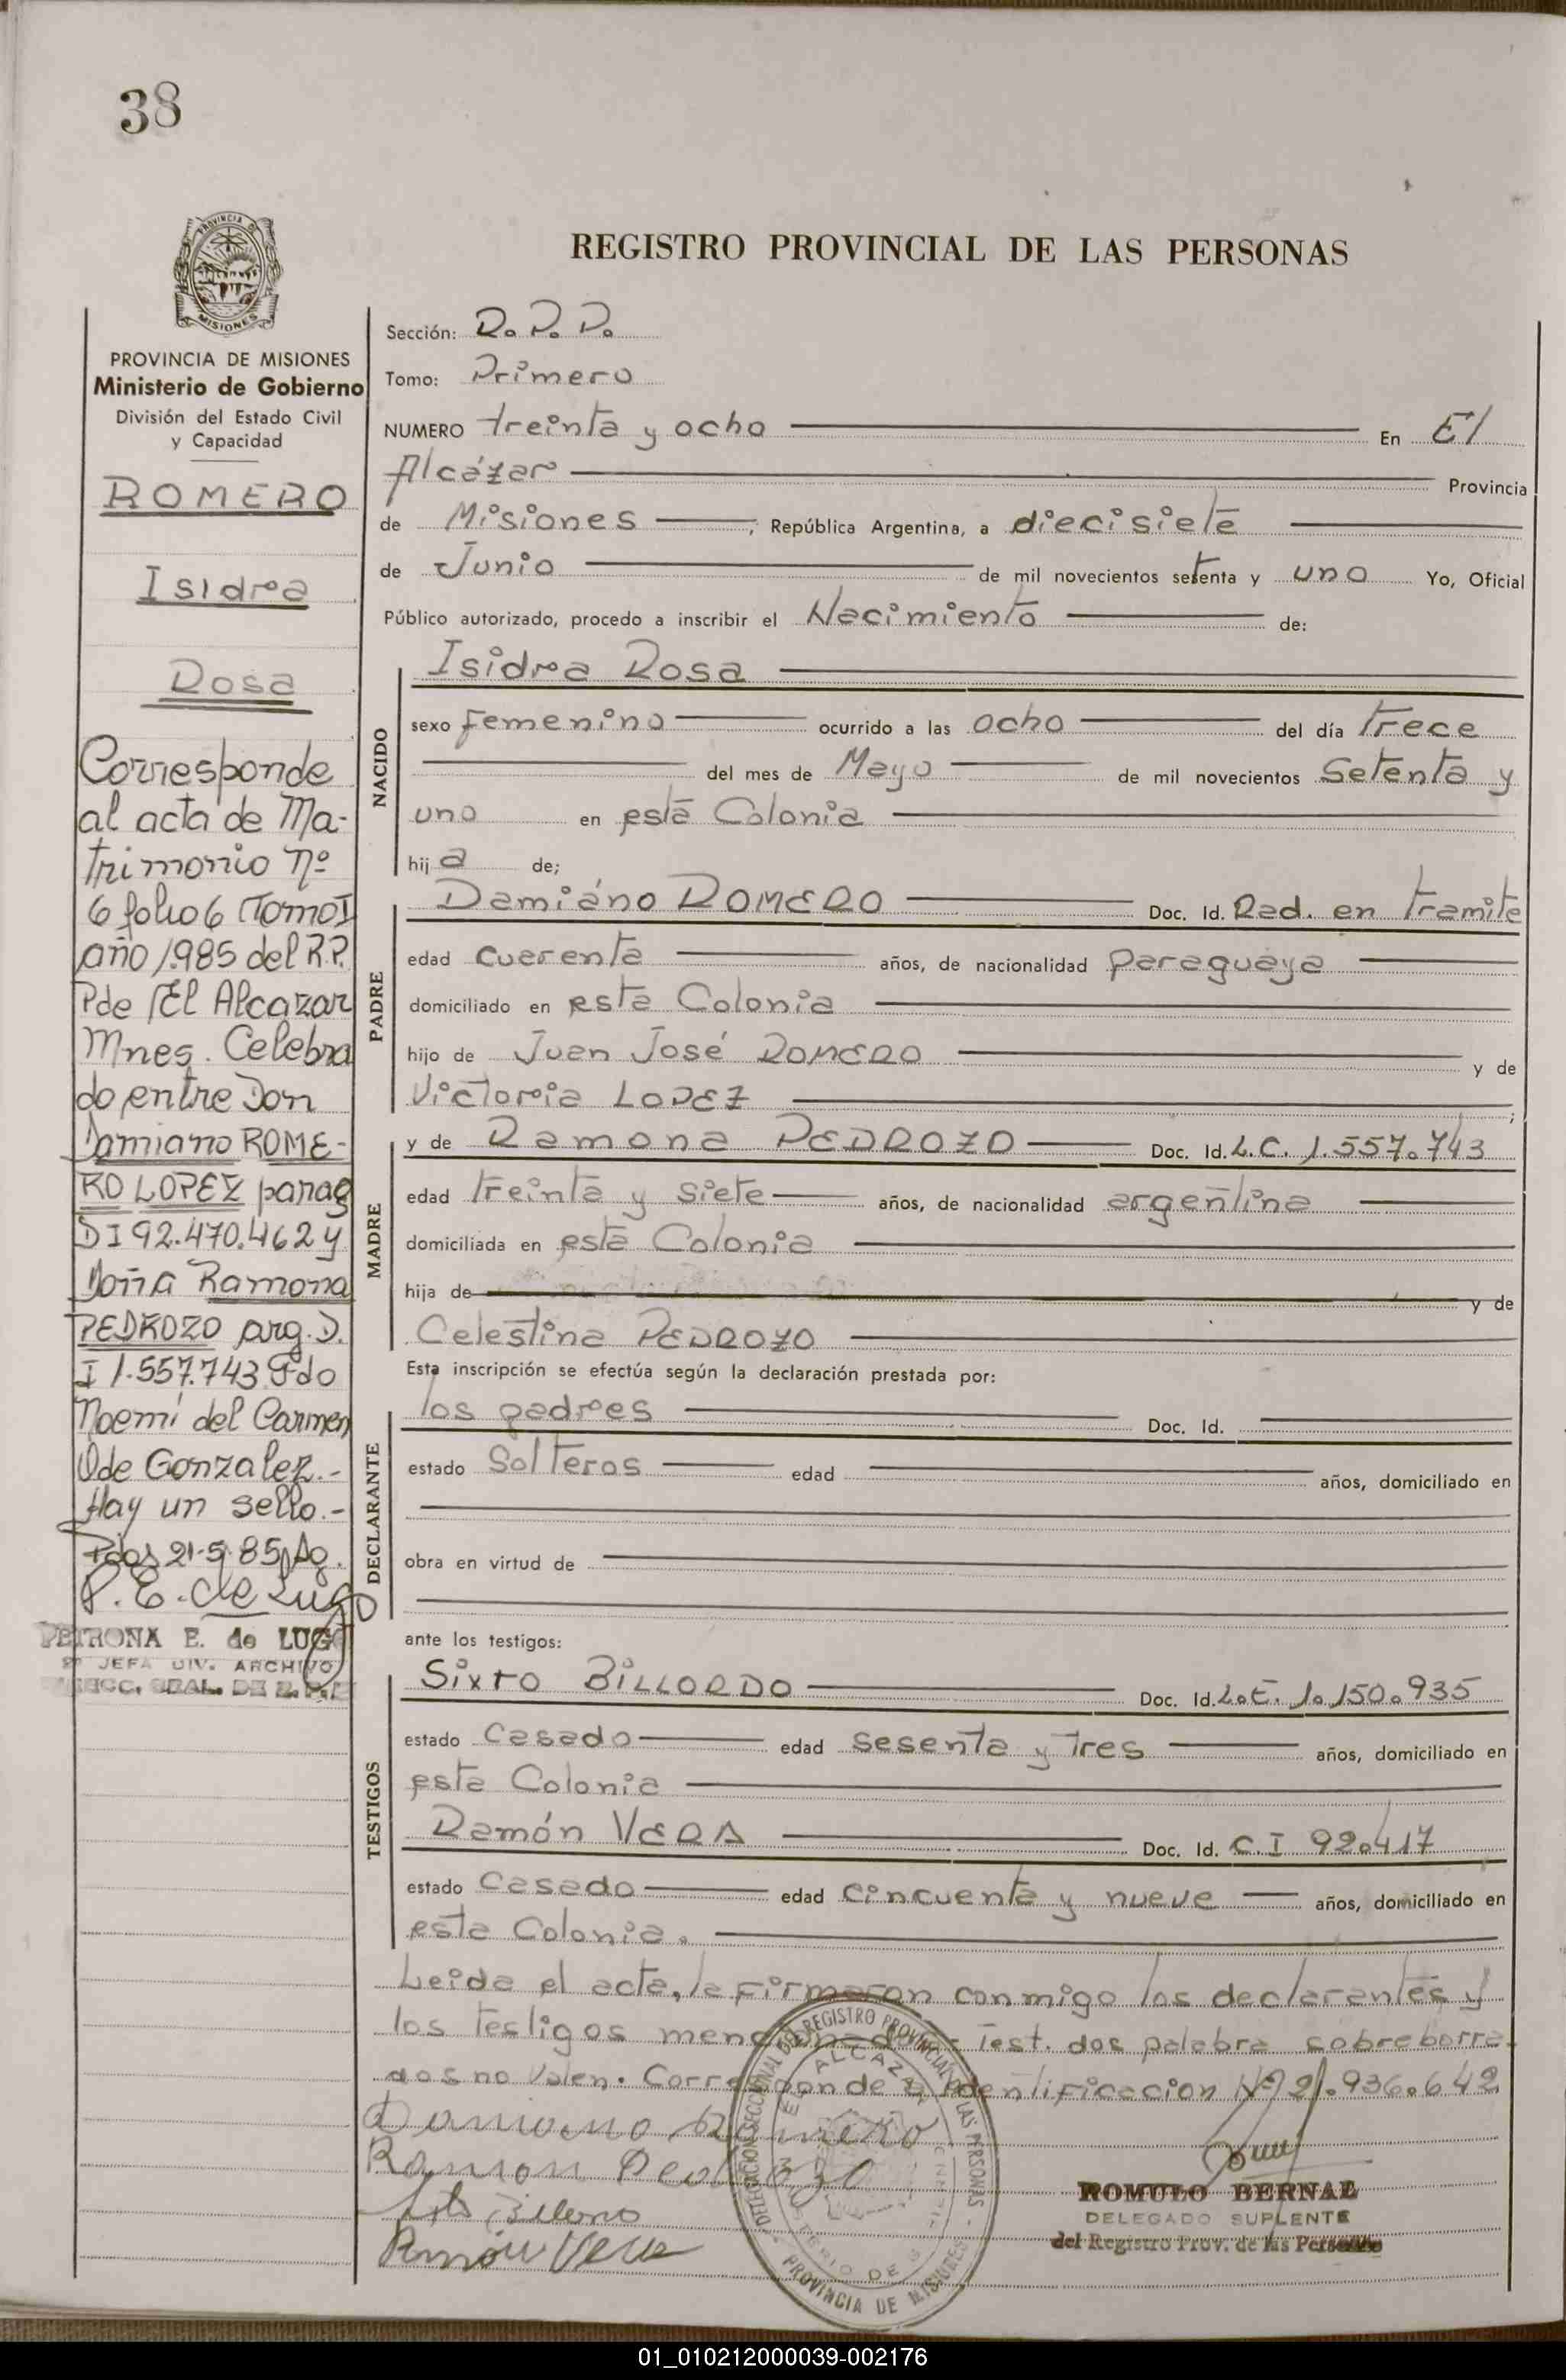 38
REGISTRO PROVINCIAL DE LAS PERSONAS
PROVINCIA DE MISIONES
Ministerio de Gobierno
División del Estado Civil
y Capacidad
ROMERO
Isidra
Rosa
Corresponde
al acta de Ma-
trimonio Nº
6 folio 6 Tomo I
año 1985 del R.P.
P de El Alcazar
Mnes. Celebra
do entre Don
Damiano ROME-
RO LOPEZ parag
DI 92.470.462 y
Doña Ramona
PEDROZO arg. D.
I 1.557.743 Fdo
Noemí del Carmen
O de Gonzalez.-
Hay un sello.-
Pdas 21-5-85
P. E. de Lugo
PETRONA E. de LUGO
JEFA DIV. ARCHIVO
DIRECC. GRAL. DE R.P.P.
Sección: R. P. P.
Tomo: Primero
NUMERO treinta y ocho En El
Alcázar Provincia
de Misiones, República Argentina, a diecisiete
de Junio de mil novecientos setenta y uno Yo, Oficial
Público autorizado, procedo a inscribir el Nacimiento de:
NACIDO
Isidra Rosa
sexo Femenino ocurrido a las ocho del día trece
del mes de Mayo de mil novecientos Setenta y
uno en está Colonia
hija de;
PADRE
Damiáno ROMERO Doc. Id. Rad. en tramite
edad cuarenta años, de nacionalidad paraguaya
domiciliado en esta Colonia
hijo de Juan José ROMERO y de
Victoria LOPEZ;
MADRE
y de Ramona PEDROZO Doc. Id. L.C. 1.557.743
edad treinta y siete años, de nacionalidad argentina
domiciliada en esta Colonia
hija de y de
Celestina PEDROZO
Esta inscripción se efectúa según la declaración prestada por:
DECLARANTE
los padres Doc. Id.
estado Solteros edad años, domiciliado en
obra en virtud de
ante los testigos:
TESTIGOS
Sixto BILLORDO Doc. Id. L.E. 1.150.935
estado Casado edad sesenta y tres años, domiciliado en
esta Colonia
Ramón VERA Doc. Id. C.I 92.417
estado Casado edad cincuenta y nueve años, domiciliado en
esta Colonia.
Leida el acta, la firmaron conmigo los declarantes y
los testigos mencionados.- Test. dos palabra sobreborra-
dos no Valen. Corresponde a Identificacion Nº 21.936.642
Damiano Romero
Ramon Pedrozo
Ramón Vera
DELEGACION SECCIONAL DEL REGISTRO PROVINCIAL DE LAS PERSONAS
EL ALCAZAR
PROVINCIA DE MISIONES
ROMULO BERNAL
DELEGADO SUPLENTE
del Registro Prov. de las Personas
01_010212000039-002176